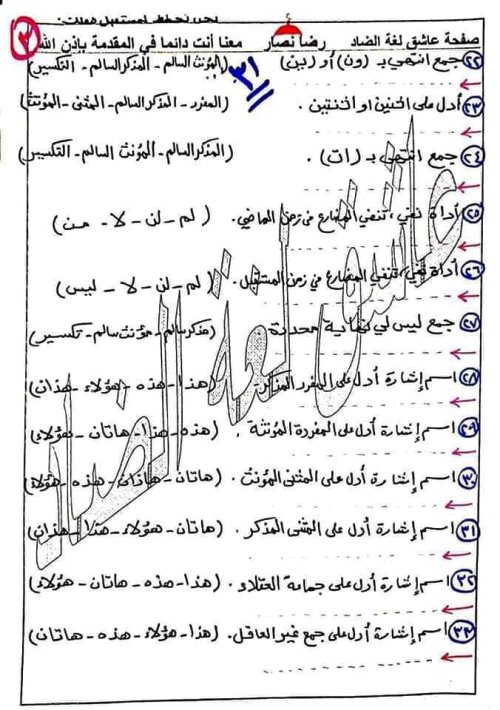 نحن نخطط لمستقبل
صفحة عاشق لغة الضاد رضا نصار معنا أنت دائما في المقدمة بإذن الله ٣
٢٢ جمع انتهي بـ (ون) أو (ين) (المؤنث السالم - المذكر السالم - التكسير)
٣١
٢٣ أدل على اثنين او اثنتين. (المفرد - المذكر السالم - المثنى - المؤنث)
٢٤ جمع انتهي بـ (ات). (المذكر السالم - المؤنث السالم - التكسير)
٢٥ أداة نفي، تنفي المضارع في زمن الماضي. (لم - لن - لا - من)
٢٦ أداة نفي، تنفي المضارع في زمن المستقبل. (لم - لن - لا - ليس)
٢٧ جمع ليس لي نهاية محددة. (مذكر سالم - مؤنث سالم - تكسير)
٢٨ اسم إشارة أدل على المفرد المذكر. (هذا - هذه - هؤلاء - هذان)
٢٩ اسم إشارة أدل على المفردة المؤنثة. (هذه - هذا - هاتان - هؤلاء)
٣٠ اسم إشارة أدل على المثنى المؤنث. (هاتان - هاذان - هذه - هؤلاء)
٣١ اسم إشارة أدل على المثنى المذكر. (هاتان - هؤلاء - هذا - هذان)
٣٢ اسم إشارة أدل على جماعة العقلاء. (هذا - هذه - هاتان - هؤلاء)
٣٣ اسم إشارة أدل على جمع غير العاقل. (هذا - هؤلاء - هذه - هاتان)
عاشق لغة الضاد